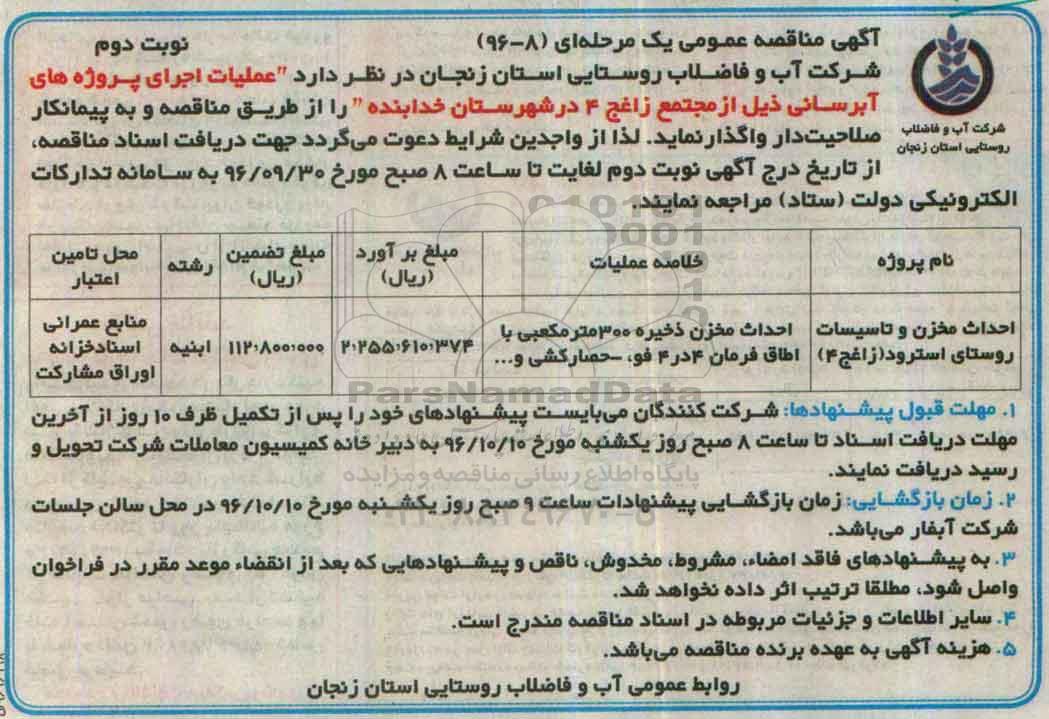 آگهی مناقصه عمومی یک مرحله‌ای (۸-۹۶)
نوبت دوم
شرکت آب و فاضلاب روستایی استان زنجان در نظر دارد "عملیات اجرای پروژه های
آبرسانی ذیل از مجتمع زاغج ۴ در شهرستان خدابنده" را از طریق مناقصه و به پیمانکار
صلاحیت‌دار واگذار نماید. لذا از واجدین شرایط دعوت می‌گردد جهت دریافت اسناد مناقصه،
از تاریخ درج آگهی نوبت دوم لغایت تا ساعت ۸ صبح مورخ ۹۶/۰۹/۳۰ به سامانه تدارکات
الکترونیکی دولت (ستاد) مراجعه نمایند.
شرکت آب و فاضلاب
روستایی استان زنجان
نام پروژه
خلاصه عملیات
مبلغ بر آورد
(ریال)
مبلغ تضمین
(ریال)
رشته
محل تامین
اعتبار
احداث مخزن و تاسیسات
روستای استرود(زاغج۴)
احداث مخزن ذخیره ۳۰۰مترمکعبی با
اطاق فرمان ۴در۴ فو، -حصارکشی و...
۲۰۲۵۵۰۶۱۰۰۳۷۴
۱۱۲۰۸۰۰۰۰۰۰
ابنیه
منابع عمرانی
اسنادخزانه
اوراق مشارکت
ParsNamadData
پایگاه اطلاع رسانی مناقصه و مزایده
۱. مهلت قبول پیشنهادها: شرکت کنندگان می‌بایست پیشنهادهای خود را پس از تکمیل ظرف ۱۰ روز از آخرین
مهلت دریافت اسناد تا ساعت ۸ صبح روز یکشنبه مورخ ۹۶/۱۰/۱۰ به دبیر خانه کمیسیون معاملات شرکت تحویل و
رسید دریافت نمایند.
۲. زمان بازگشایی: زمان بازگشایی پیشنهادات ساعت ۹ صبح روز یکشنبه مورخ ۹۶/۱۰/۱۰ در محل سالن جلسات
شرکت آبفار می‌باشد.
۳. به پیشنهادهای فاقد امضاء، مشروط، مخدوش، ناقص و پیشنهادهایی که بعد از انقضاء موعد مقرر در فراخوان
واصل شود، مطلقا ترتیب اثر داده نخواهد شد.
۴. سایر اطلاعات و جزئیات مربوطه در اسناد مناقصه مندرج است.
۵. هزینه آگهی به عهده برنده مناقصه می‌باشد.
روابط عمومی آب و فاضلاب روستایی استان زنجان